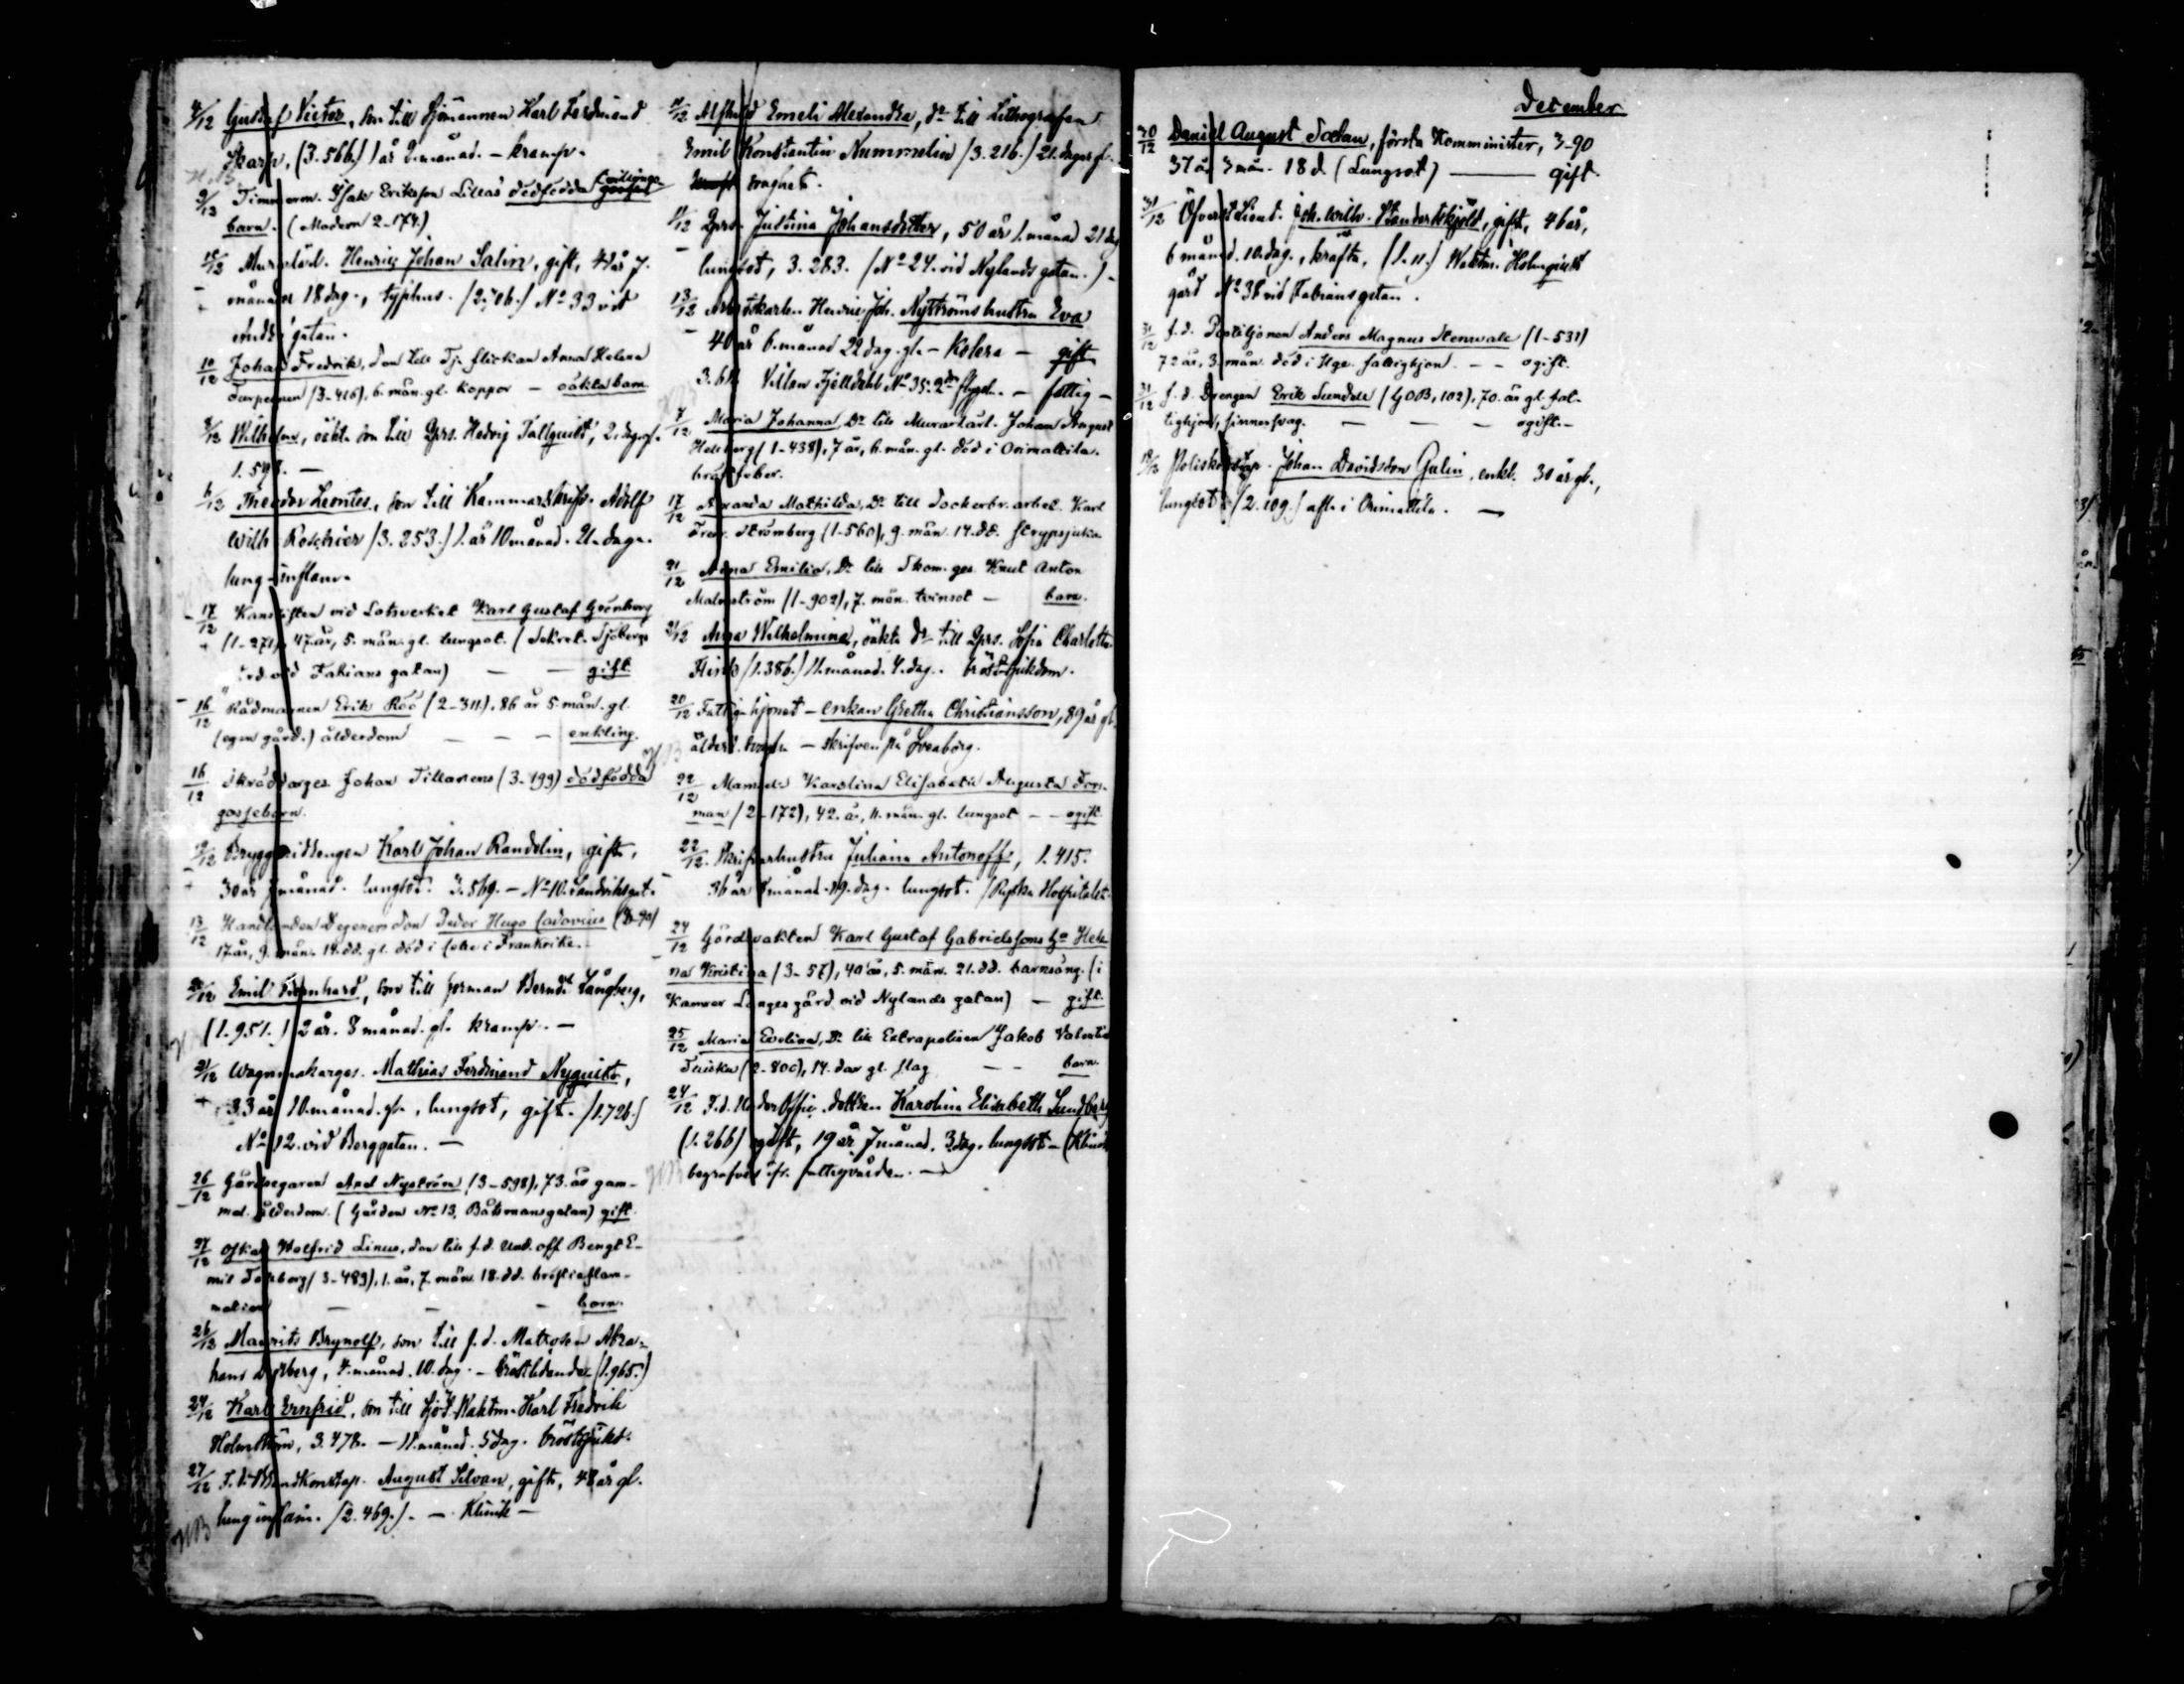 4/12 Gustaf Victor, son till Sjömannen Karl Ferdinand
Skarp, (3.566.) 1 år 2. månad. – kramp.
9/12 Timmerm. Isak Eriksson Lilläs dödfödda tvillinge-
barn. (Modern 2–174.)
10/12 Murarlärl. Henric Johan Salin, gift, år 7.
månader 18 dag., typhus. /2.706./ No 33 vid
gatan.
10/12 Johan Fredrik, son till Tj. flickan Anna Helena
(3–416), 6. mån. gl. koppor – oäkta barn
8/12 Wilhelm, oäkt. son till Qprs. Hedvig Tallquist, 2. dag. gl.
1.591. –
6/12 Theodor Leontes, son till Kammarskrifv. Adolf
Wilh. Roschier /3.253./ 1. år 10 månad. 21. dagar.
lung-inflam.
17/12 Kanslisten vid Lotsverket Karl Gustaf Grönberg
(1–271), 47. år, 5. mån. gl. lungsot. (Sekret. Sjöbergs
gård vid Fabians gatan) – – gift
16/12 Rådmannen Erik Röö (2–311), 86 år 5 mån. gl.
(egen gård.) ålderdom – – – enkling.
16/12 Skräddarges. Johan Tillanens (3–199) dödfödda
gossebarn.
19/12 Bryggeridrengen Karl Johan Randelin, gift,
30 år månad. lungsot. 3.569. – No 10. Landviksgat.
13/12 Handlanden Degeners son Peder Hugo Cadovius
17 år, 9. mån. 14. dd. gl. död i Cette i Frankrike.
20/12 Emil Bernhard, son till forman Berndt Långberg,
(1.951.) 2 år. 8 månad. gl. kramp. –
21/12 Wagnmakarges. Mathias Ferdinand Nyquist,
33 år 10. månad. gl., lungsot, gift. /1.726./
No 12. vid Berggatan. –
26/12 Gårdsegaren And. Nyström (3–598), 73. år gam-
mal. ålderdom. (Gården No 13, Båtsmansgatan) gift.
27/12 Oskar Walfrid Linus, son till f.d. Und. off Bengt E-
mil (3–489), 1. år, 7. mån. 18. dd. bröstinflam-
mation – – – barn.
26/12 Maurits Brynolf, son till f.d. Matrosen Abra-
ham , 4. månad. 10. dag. – bröstlidande (1.965.)
24/12 Karl Ernfrid, son till Sjö T. Waktm. Karl Fredrik
Holmström, 3.478. – 11. månad. 5 dag. bröstsjukd.
27/12 F.d. Brandkonstap. August Silvan, gift, 48 år gl.
lunginflam. /2.469./. – Klinik –
NB
11/12 Alfhild Emeli Alexandra, dr till Lithografen
Emil Konstantin Nummelin /3.216./ 21. dagar gl.
svaghet.
11/12 Qprs. Justina Johansdotter, 50 år 1. månad 21 dag
lungsot, 3.283. /No 24. vid Nylands gatan.) –
13/12 Arbetskarln Henric Joh. Nyströms hustru Eva
40 år 6. månad 22 dag. gl. – Kolera – gift
Villan Fjelldahl No 35. flygel. – fattig –
7/12 Maria Johanna, Dr till Murarlärl. Johan August
(1–438), 7 år, 6. mån. gl. död i Orimattila.
bröstfeber.
17/12 Amanda Mathilda, Dr till Sockerbr. arbet. Karl
Fredr. Strömberg (1–560), 9. mån. 14. dd. strypsjuka
21/12 Anna Emilia, Dr till Skom. ges. Knut Anton
Malmström (1–902), 7. mån. tvinsot – barn.
21/12 Anna Wilhelmina, oäkta dr till Qprs. Sofia Charlotta
/1.386./ 11. månad. 4. dag. bröstsjukdom.
20/12 Fattighjonet – enkan Gretha Christiansson, 89 år gl.
ålderd. – skrifven på Sveaborg.
22/12 Mamsell Karolina Elisabeth Augusta Fors-
man (2–172), 42. år, 11. mån. gl. lungsot – – ogift
22/12. Skrifvarhustru Juliana Antonoff, 1.415.
36 år månad. 19. dag. lungsot. /Ryska Hospitalet.
24/12 Gårdsvakten Karl Gustaf Gabrielssons ha Hele-
na Kristina (3–57), 40 år, 5. mån. 21. dd. barnsäng. (i
Kamrer Langes gård vid Nylands gatan) – gift.
25/12 Maria Evelina, Dr till Extrapolisen Jakob Valentin
(2–800), 14. dar gl. slag – – barn.
24/12 F.d. Under Offic. dottren Karolina Elisabeth Lundberg
(1.266) ogift, 19 år 7 månad. 3 dag. lungsot – (Klinik
begrafves fr. fattigvården. –
December
30/12 Daniel August , första Komminister, 3–90
37 år 3 mån. 18 d. (Lungsot) – gift.
31/12 Öfverst Lieut. Joh. Wilh. Standertskjöld, gift, 46 år,
6 månad. 10. dag., kräfta. (1.11.) Waktm. Holmquists
gård No 38 vid Fabiansgatan.
31/12 f.d. Postiljonen Anders Magnus Stenvall (1–531)
72 år, 3. mån. död i Hge. fattighjon. – – ogift.
31/12 f.d. Drengen Erik Sundell (GOB, 102), 70. år gl. fat-
tighjon, sinnessvag. – – – ogift. –
Poliskonstap. Johan Davidsson Gulin, enkl. 30 år gl.,
lungsot /2.109./ afl. i Orimattila. –